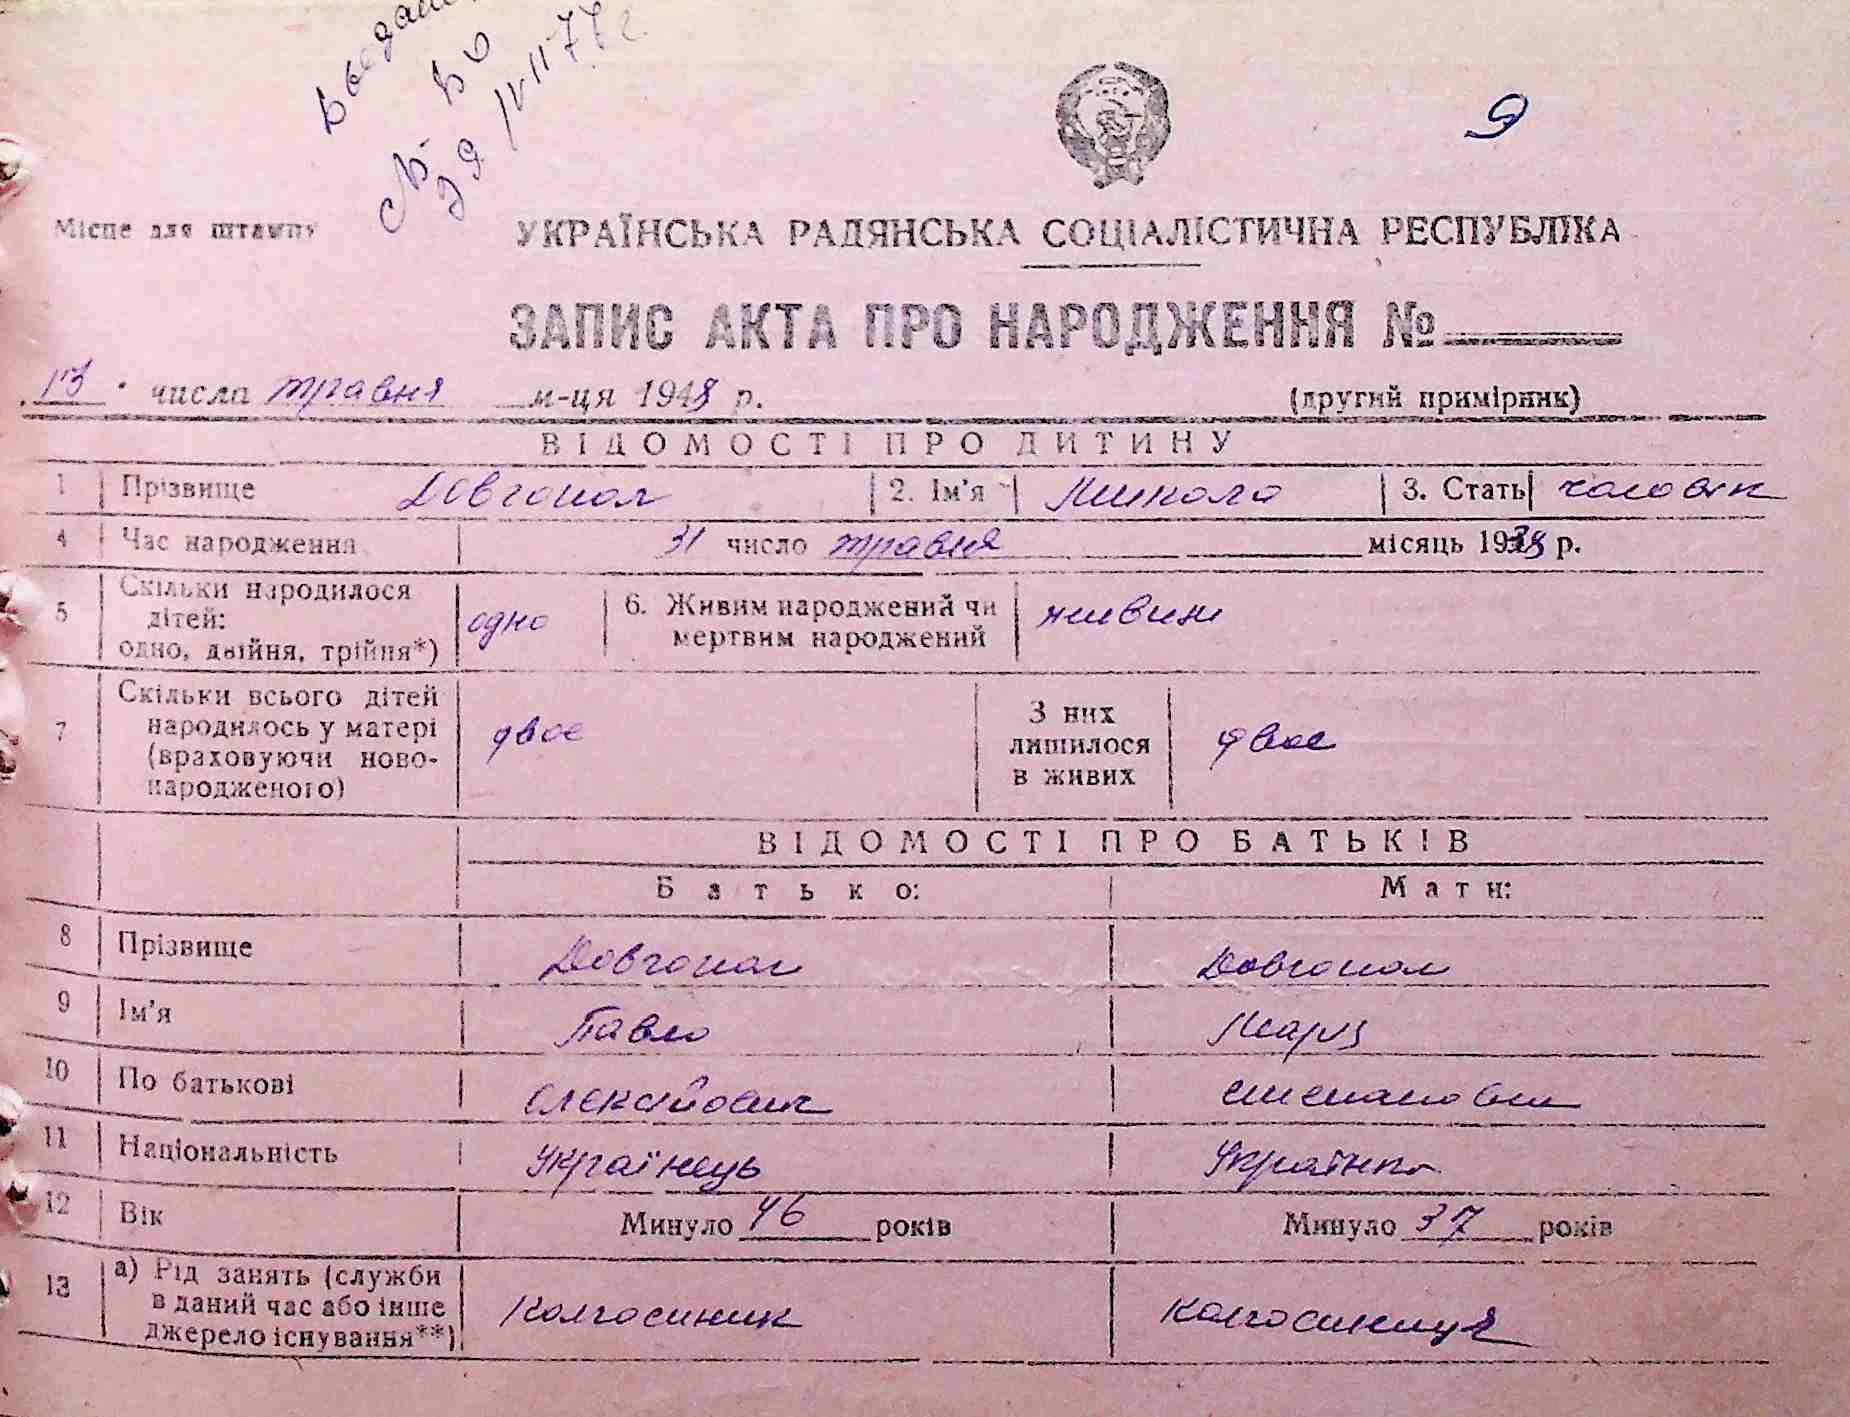 9
Місце для штампу
УКРАЇНСЬКА РАДЯНСЬКА СОЦІАЛІСТИЧНА РЕСПУБЛІКА
ЗАПИС АКТА ПРО НАРОДЖЕННЯ №
13 числа травня м-ця 1948 р. (другий примірник)
ВІДОМОСТІ ПРО ДИТИНУ
1 Прізвище Довгопол 2. Ім'я Микола 3. Стать чоловік
4 Час народження 31 число травня місяць 1938 р.
5 Скільки народилося дітей: одно, двійня, трійня*) одно 6. Живим народжений чи мертвим народжений живим
7 Скільки всього дітей народилось у матері (враховуючи новонародженого) двоє З них лишилося в живих двоє
ВІДОМОСТІ ПРО БАТЬКІВ
Батько: Мати:
8 Прізвище Довгопол Довгопол
9 Ім'я Павло Марія
10 По батькові Олексійович Степановна
11 Національність Українець Українка
12 Вік Минуло 46 років Минуло 37 років
13 а) Рід занять (служби в даний час або інше джерело існування**) Колгоспник Колгоспниця